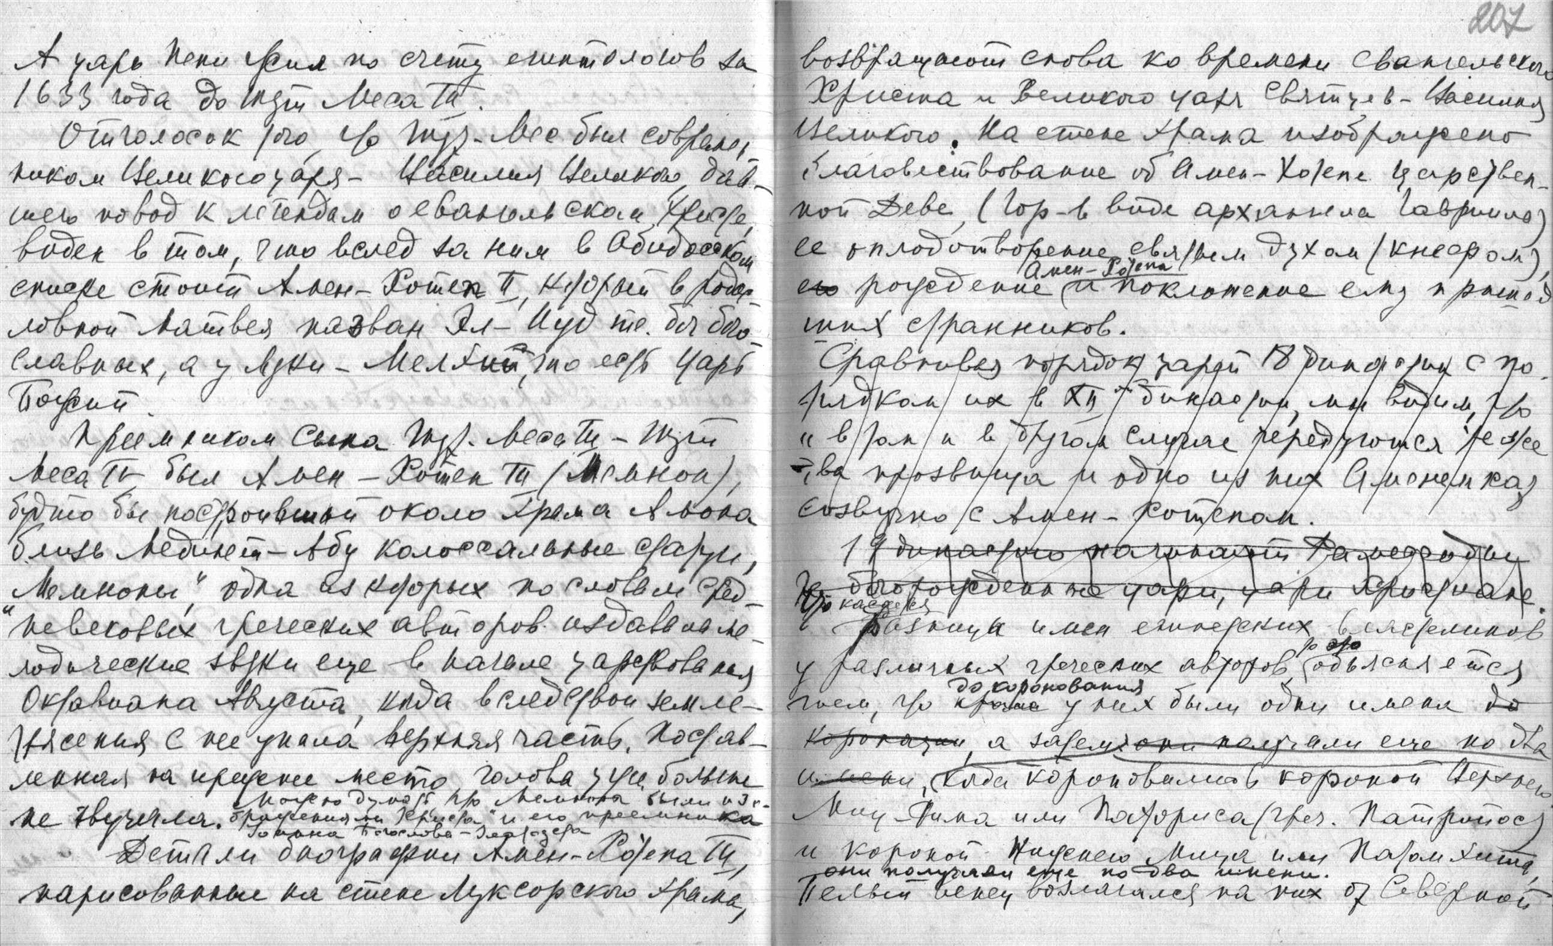 А царь Пепи жил по счету египтологов за
1633 года до Тут Меса III.
Отголосок того, что Тут-Мес был современ-
ником Великого царя – Василия Великого, дав-
шего повод к легендам о евангельском Христе,
виден в том, что вслед за ним в Абидосском
списке стоит Амен-Хотеп II, который в родос-
ловной Матвея назван Эл-Иуд т.е. бог бого-
славных, а у Луки – Мелхий, то есть царь
Божий.
Преемником сына Тут-Меса III – Тут
Меса IV был Амен-Хотеп III (Мемнон),
будто бы построивший около храма Амона
близь Мединет-Абу колоссальные статуи,
"Мемноны", одна из которых по словам сред-
невековых греческих авторов издавала ме-
лодические звуки еще в начале царствования
Октавиана Августа, когда вследствии земле-
трясения с нее упала верхняя часть. Постав-
ленная на прежнее место голова уже больше
не звучала.
Можно думать, что Мемноны были изо-
бражениями "Христа" и его преемника
Иоанна Богослова-
Детали биографии Амен-Хотепа III,
нарисованные на стене Луксорского храма,
207
возвращают снова ко времени евангельского
Христа и Великого царя святцев – Василия
Великого. На стене храма изображено
благовествование об Амен-Хотепе царствен-
ной Деве, (Тор-в виде архангела Гавриила)
ее оплодотворение святым духом (Кнефом),
его рождение Амен-Хотепа и поклонение ему приход
щих странников.
Сравнивая порядок царей 18 династии с по-
рядком их в XII династии, мы видим, что
и в том и в другом случае чередуются те же
два прозвища и одно из них Аменемхат
созвучно с Амен-Хотепом.
19 династию начинают Рамессы
богорожденные цари, цари Христиане.
Что касается
Разница имен египетских властелинов
у различных греческих авторов, то это объясняется
тем, что до коронования у них были одни имена до
коронации, а затем они получали еще по два
имени, когда короновались короной Верхнего
Миц Рима или Паториса (греч. Патрполос)
и короной Нижнего Мица или
они получали еще по два имени.
Белый венец возлагался на них от Северной